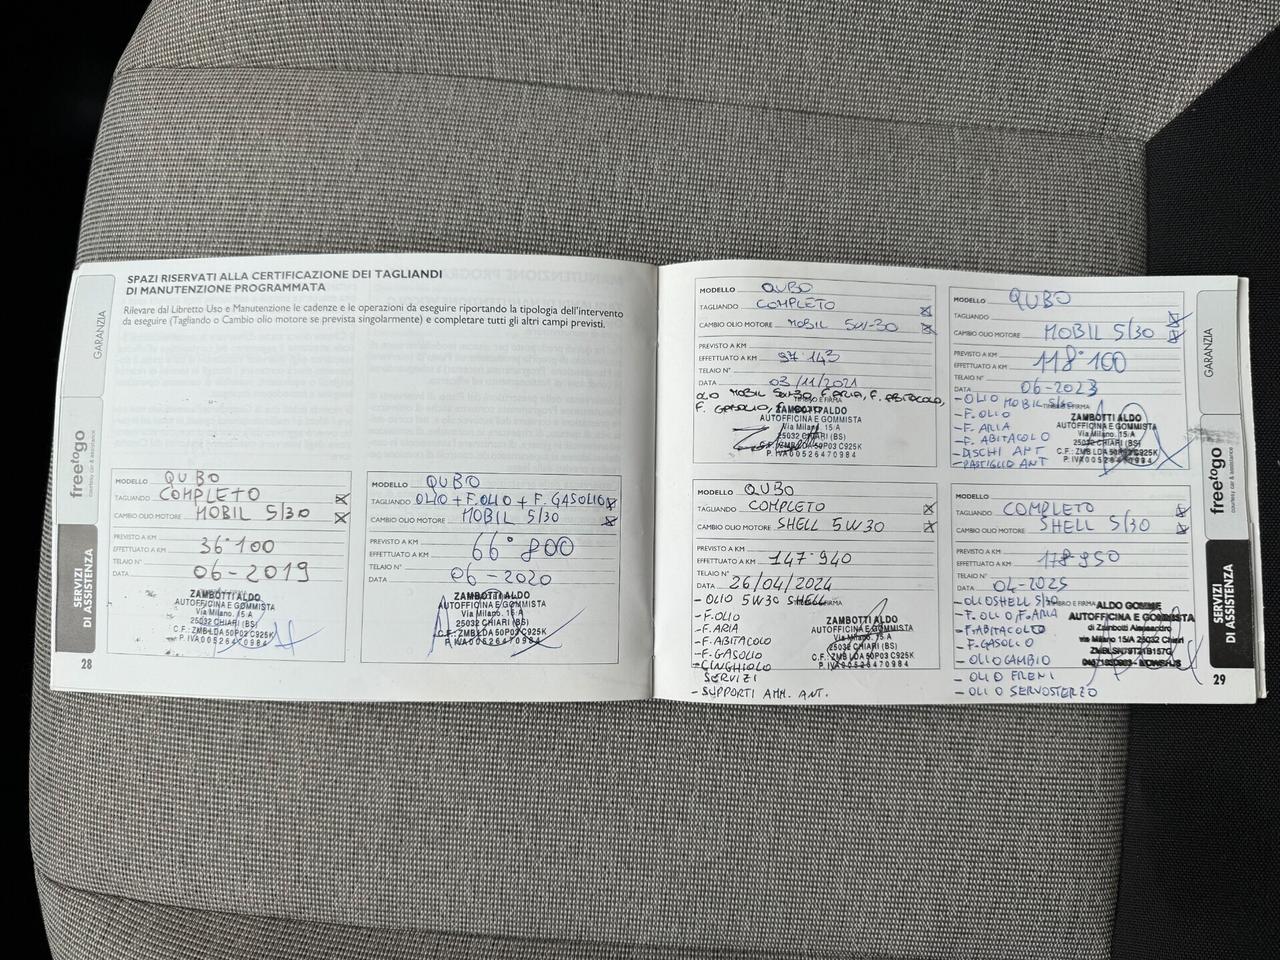 SPAZI RISERVATI ALLA CERTIFICAZIONE DEI TAGLIANDI
DI MANUTENZIONE PROGRAMMATA
Rilevare dal Libretto Uso e Manutenzione le cadenze e le operazioni da eseguire riportando la tipologia dell'intervento
da eseguire (Tagliando o Cambio olio motore se prevista singolarmente) e completare tutti gli altri campi previsti.
GARANZIA
freetogo
courtesy car & assistance
SERVIZI
DI ASSISTENZA
28
MODELLO QUBO
TAGLIANDO COMPLETO X
CAMBIO OLIO MOTORE MOBIL 5/30 X
PREVISTO A KM
EFFETTUATO A KM 36°100
TELAIO N°
DATA 06-2019
ZAMBOTTI ALDO
AUTOFFICINA E GOMMISTA
Via Milano, 15-A
25032 CHIARI (BS)
C.F.: ZMB LDA 50P03 C925K
P. IVA 00526470984
MODELLO QUBO
TAGLIANDO OLIO + F.OLIO + F. GASOLIO X
CAMBIO OLIO MOTORE MOBIL 5/30 X
PREVISTO A KM
EFFETTUATO A KM 66°800
TELAIO N°
DATA 06-2020
ZAMBOTTI ALDO
AUTOFFICINA E GOMMISTA
Via Milano, 15-A
25032 CHIARI (BS)
C.F.: ZMB LDA 50P03 C925K
P. IVA 00526470984
MODELLO QUBO
TAGLIANDO COMPLETO X
CAMBIO OLIO MOTORE MOBIL 5W-30 X
PREVISTO A KM
EFFETTUATO A KM 97°143
TELAIO N°
DATA 03/11/2021
OLIO MOBIL 5W30, F.ARIA, F. ABITACOLO,
F. GASOLIO,
ZAMBOTTI ALDO
AUTOFFICINA E GOMMISTA
Via Milano, 15/A
25032 CHIARI (BS)
C.F.: ZMB LDA 50P03 C925K
P. IVA 00526470984
MODELLO QUBO
TAGLIANDO X
CAMBIO OLIO MOTORE MOBIL 5/30 X
PREVISTO A KM
EFFETTUATO A KM 118°100
TELAIO N°
DATA 06-2023
- OLIO MOBIL 5/30
- F. OLIO
- F. ARIA
- F. ABITACOLO
- DISCHI ANT
- PASTIGLIE ANT
ZAMBOTTI ALDO
AUTOFFICINA E GOMMISTA
Via Milano, 15/A
25032 CHIARI (BS)
C.F.: ZMB LDA 50P03 C925K
P. IVA 00526470984
MODELLO QUBO
TAGLIANDO COMPLETO X
CAMBIO OLIO MOTORE SHELL 5W30 X
PREVISTO A KM
EFFETTUATO A KM 147°940
TELAIO N°
DATA 26/04/2024
- OLIO 5W30 SHELL
- F.OLIO
- F.ARIA
- F. ABITACOLO
- F. GASOLIO
- CINGHIOLO
SERVIZI
- SUPPORTI AMM. ANT.
ZAMBOTTI ALDO
AUTOFFICINA E GOMMISTA
Via Milano, 15 A
25032 CHIARI (BS)
C.F. ZMB LDA 50P03 C925K
P. IVA 00526470984
MODELLO
TAGLIANDO COMPLETO X
CAMBIO OLIO MOTORE SHELL 5/30 X
PREVISTO A KM
EFFETTUATO A KM
TELAIO N°
DATA 04-2025
- OLIO SHELL 5/30
- F. OLIO/F.ARIA
- F. ABITACOLO
- F. GASOLIO
- OLIO CAMBIO
- OLIO FRENI
- OLIO SERVOSTERZO
ALDO GOMME
AUTOFFICINA E GOMMISTA
di Zambotti Alessandro
via Milano 15/A 25032 Chiari
GARANZIA
freetogo
courtesy car & assistance
SERVIZI
DI ASSISTENZA
29